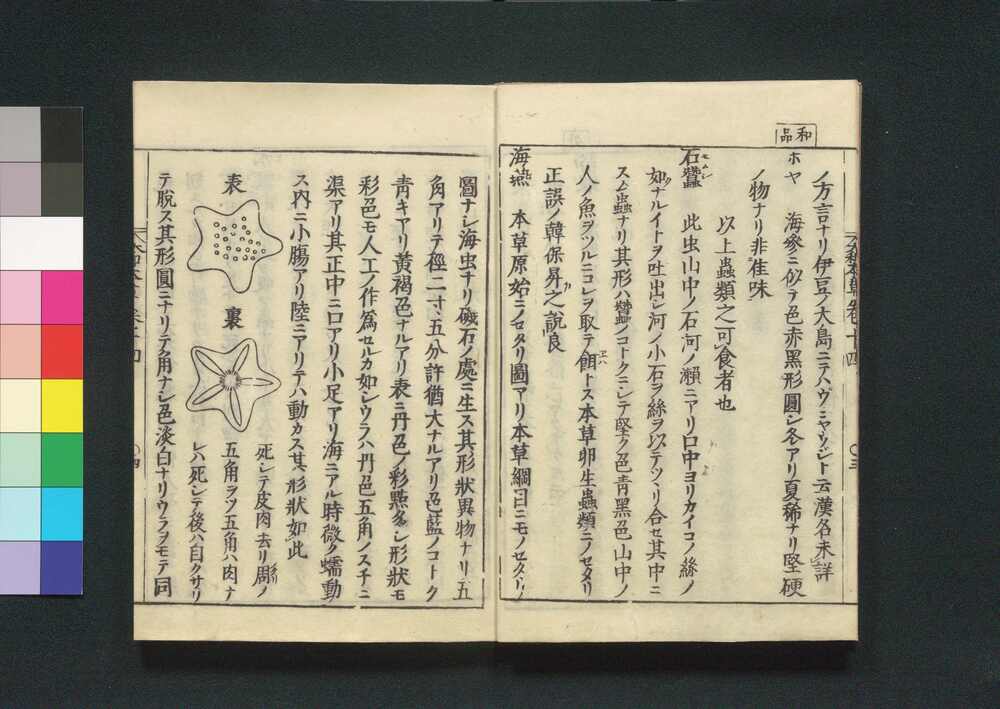 ノ方言ナリ伊豆ノ大島ニテハヴニヤウジント云漢名未詳
和品
ホヤ 海參ニ似テ色赤黒形圓シ冬アリ夏稀ナリ堅硬
ノ物ナリ非佳味
以上蟲類之可食者也
石蠶 此虫山中ノ石河ノ瀬ニアリ口中ヨリカイコノ絲ノ
如クナルイトヲ吐出シ河ノ小石ヲ絲ヲ以テツヽリ合セ其中ニ
スム蟲ナリ其形ハ蠶ノコトクニシテ堅ク色青黒色山中ノ
人ノ魚ヲツルニコレヲ取テ餌トス本草卵生蟲類ニノセタリ
正誤ノ韓保昇之説良
海燕 本草原始ニノセタリ圖アリ本草綱目ニモノセタレ𪜈
圖ナシ海虫ナリ礒石ノ處ニ生ス其形狀異物ナリ五
角アリテ徑二寸、五分許猶大ナルアリ色藍ノコトク
青キアリ黄褐色ナルアリ表ニ丹色ノ彩㸃多シ形狀モ
彩色モ人工ノ作爲セルカ如シウラハ丹色五角ノスチニ
渠アリ其正中ニ口アリ小足アリ海ニアル時微ク蠕動
ス内ニ小腸アリ陸ニアリテハ動カス其形狀如此
表
裏
死シテ皮肉去リ周ノ
五角ヲツ五角ハ肉ナ
レハ死シテ後ハ白クサリ
テ脱ス其形圓ニナリテ角ナシ色淡白ナリウラヲモテ同